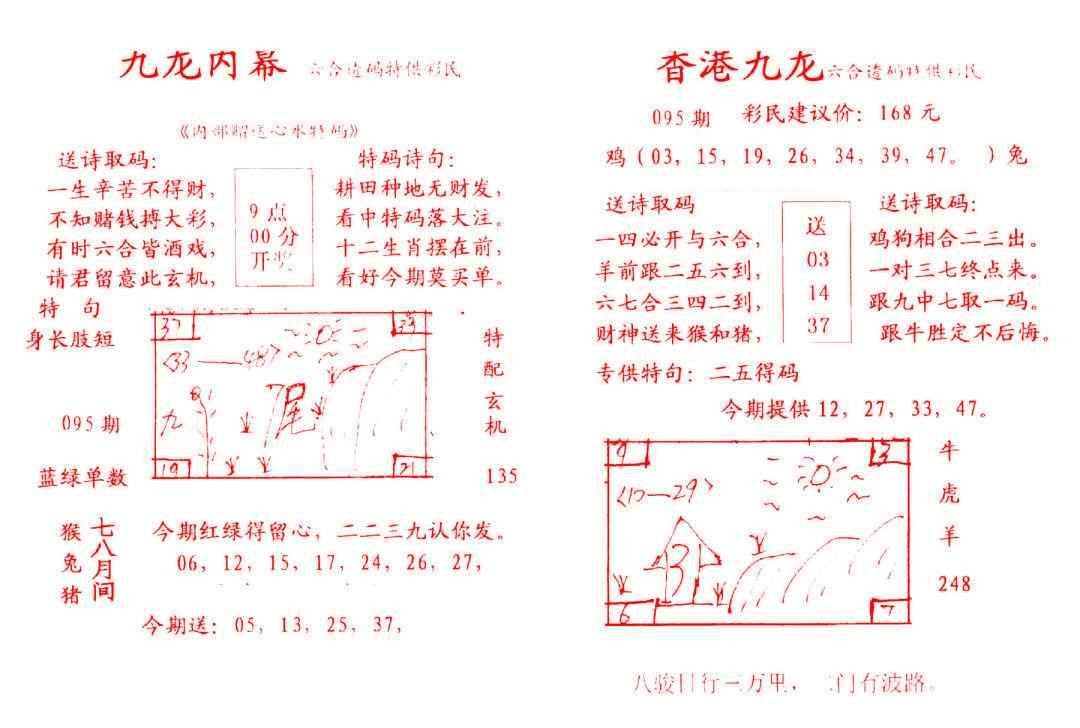 九龙内幕 六合透码特供彩民
《内部赠送心水特码》
送诗取码：
一生辛苦不得财，
不知赌钱搏大彩，
有时六合皆酒戏，
请君留意此玄机，
9点
00分
开奖
特码诗句：
耕田种地无财发，
看中特码落大注。
十二生肖摆在前，
看好今期莫买单。
特 句
身长肢短
095期
蓝绿单数
37
<33—48>
九
尾
19
21
特
配
玄
机
135
猴
兔
猪
七八月间
今期红绿得留心，二二三九认你发。
06，12，15，17，24，26，27，
今期送：05，13，25，37，
香港九龙 六合透码特供彩民
095期 彩民建议价：168元
鸡（03，15，19，26，34，39，47。 ）兔
送诗取码
一四必开与六合，
羊前跟二五六到，
六七合三四二到，
财神送来猴和猪，
送
03
14
37
送诗取码：
鸡狗相合二三出。
一对三七终点来。
跟九中七取一码。
跟牛胜定不后悔。
专供特句：二五得码
今期提供12，27，33，47。
9
3
6
7
牛
虎
羊
248
八骏日行三万里，门有波路。